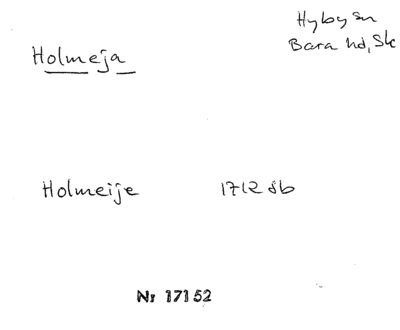 Hyby sn
Holmeja
Bara hd, Sk
Holmeije 1712 sb
Nr 17152